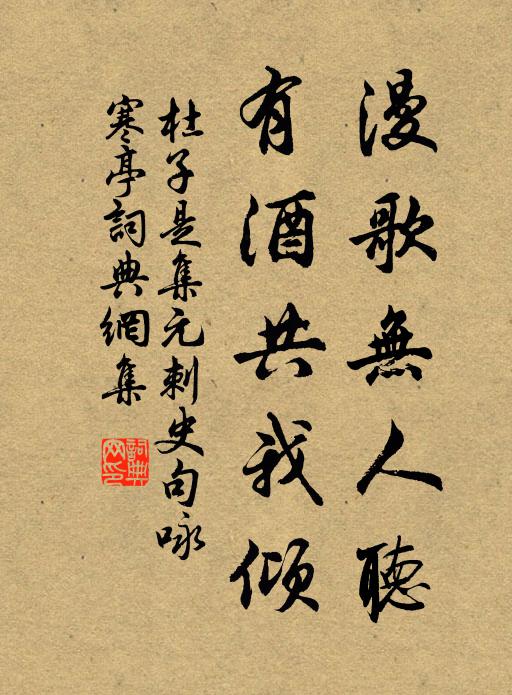 漫歌無人聽
有酒共我傾
杜子是集元刺史句咏
寒亭詞典網集
詞典網印